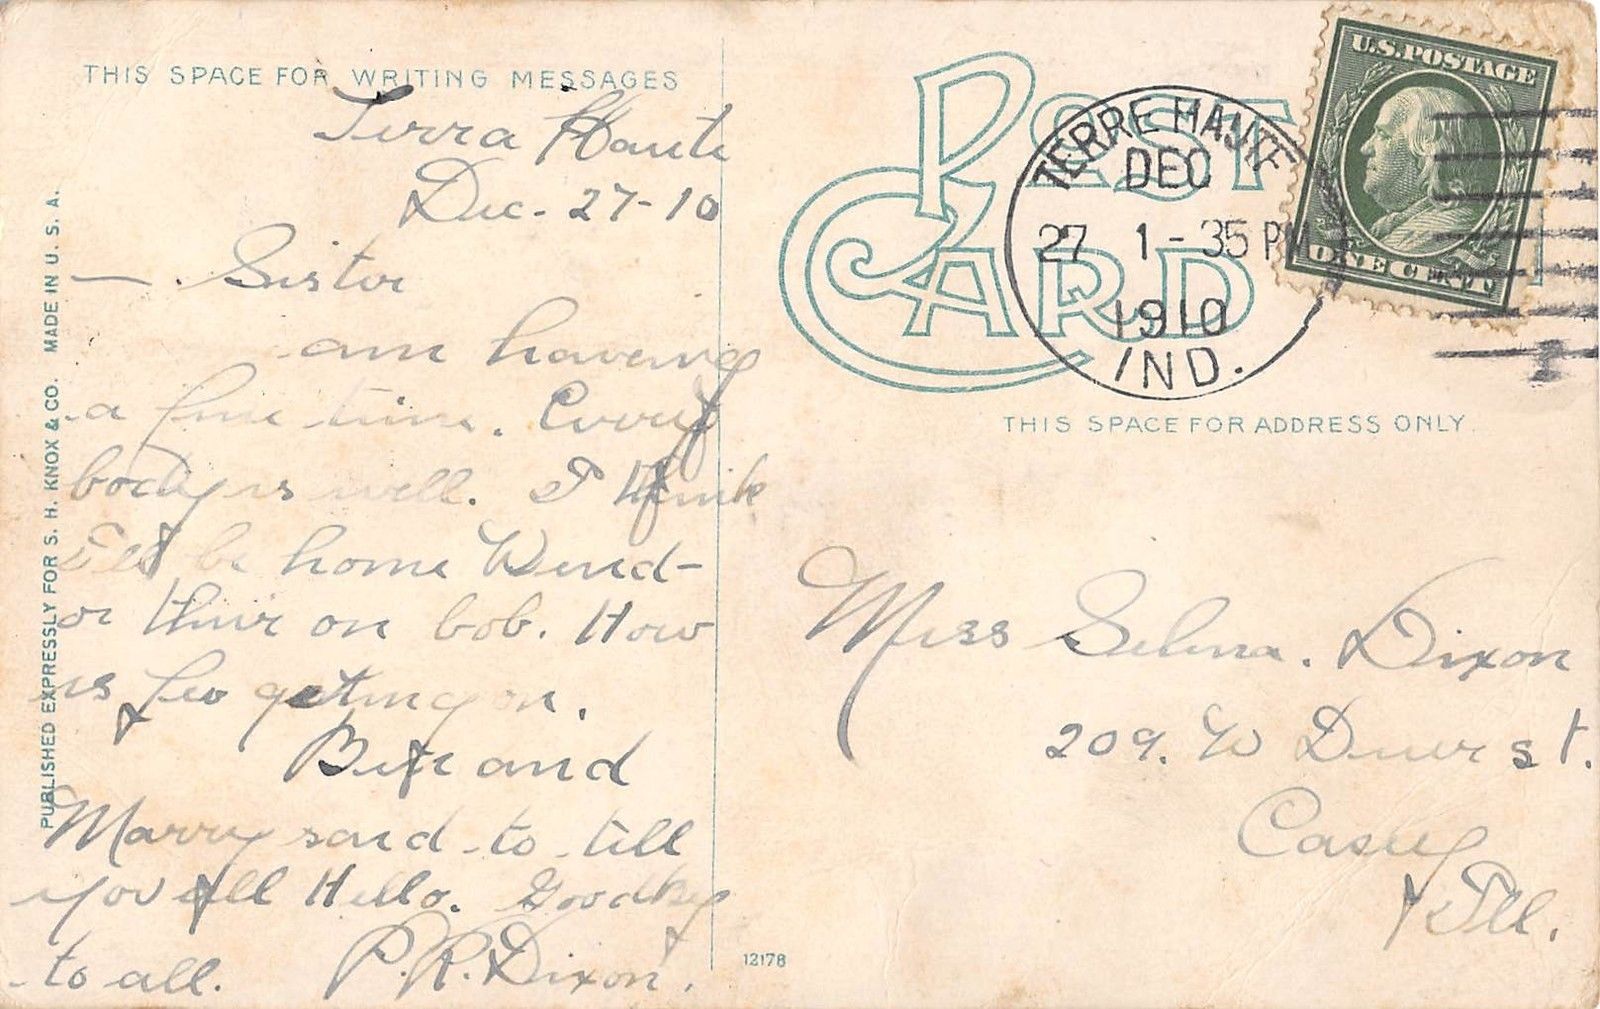 THIS SPACE FOR WRITING MESSAGES
Terra Haute
Dec. 27-10
Sister
am having
a fine time. Every
body is well. I think
I'll be home Wend-
or thur on bob. How
is Leo getting on.
Burt and
Marry said to till
you all Hello. Goodby
to all. P.R. Dixon.
PUBLISHED EXPRESSLY FOR S. H. KNOX & CO. MADE IN U. S. A.
POST CARD
TERRE HAUTE
DEC
27 1-35 PM
1910
IND.
U.S. POSTAGE
ONE CENT
THIS SPACE FOR ADDRESS ONLY
Miss Selma. Dixon
209. W st.
Casey
Ill.
12178